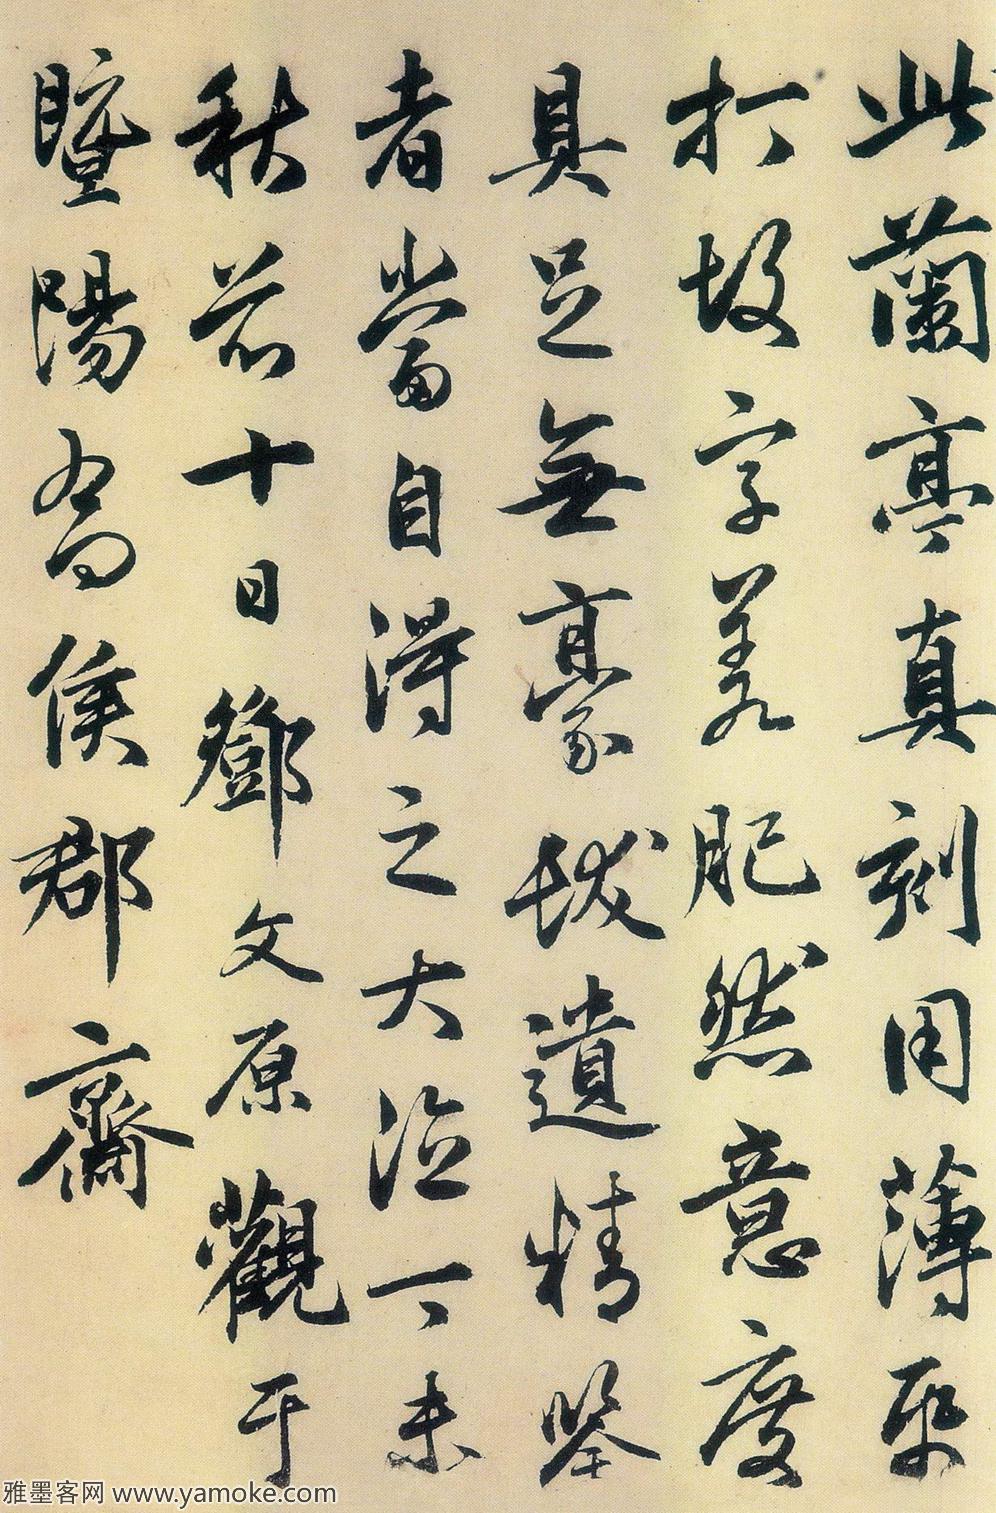 此蘭亭真刻用薄紙
打故字差肥然意度
具足無豪髮遺精鑒
者當自得之大德丁未
秋前十日鄧文原觀于
暨陽喬侯郡齋
雅墨客网 www.yamoke.com